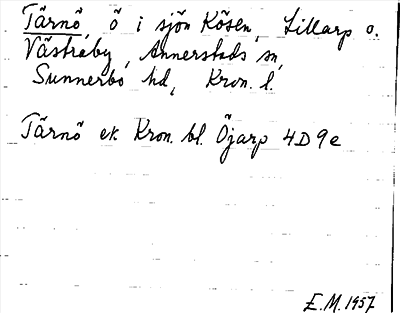 Tärnö, ö i sjön Kösen, Lillarp o.
Västraby, Annerstads sn,
Sunnerbo hd, Kron. l.
Tärnö ek Kron. bl. Öjarp 4D9e
E.M. 1957